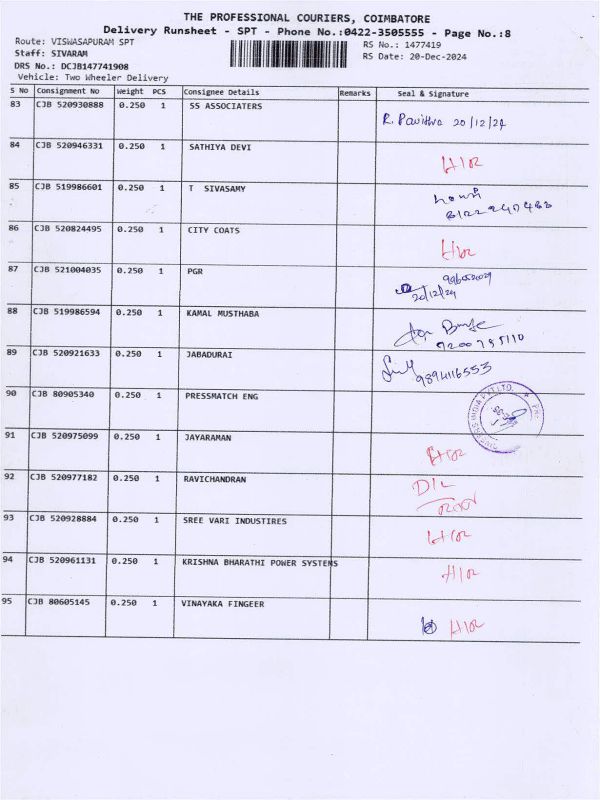 THE PROFESSIONAL COURIERS, COIMBATORE
Delivery Runsheet - SPT - Phone No.:0422-3505555 - Page No.:8
Route: VISWASAPURAM SPT
RS No.: 1477419
Staff: SIVARAM
RS Date: 20-Dec-2024
DRS No.: DCJB147741908
Vehicle: Two Wheeler Delivery
S No Consignment No Weight PCS Consignee Details Remarks Seal & Signature
83 CJB 520930888 0.250 1 SS ASSOCIATERS
R. Pavithra 20/12/24
84 CJB 520946331 0.250 1 SATHIYA DEVI
85 CJB 519986601 0.250 1 T SIVASAMY
86 CJB 520824495 0.250 1 CITY COATS
87 CJB 521004035 0.250 1 PGR
20/12/24
88 CJB 519986594 0.250 1 KAMAL MUSTHABA
89 CJB 520921633 0.250 1 JABADURAI
9894116553
90 CJB 80905340 0.250 1 PRESSMATCH ENG
91 CJB 520975099 0.250 1 JAYARAMAN
92 CJB 520977182 0.250 1 RAVICHANDRAN
93 CJB 520928884 0.250 1 SREE VARI INDUSTIRES
94 CJB 520961131 0.250 1 KRISHNA BHARATHI POWER SYSTEMS
95 CJB 80605145 0.250 1 VINAYAKA FINGEER